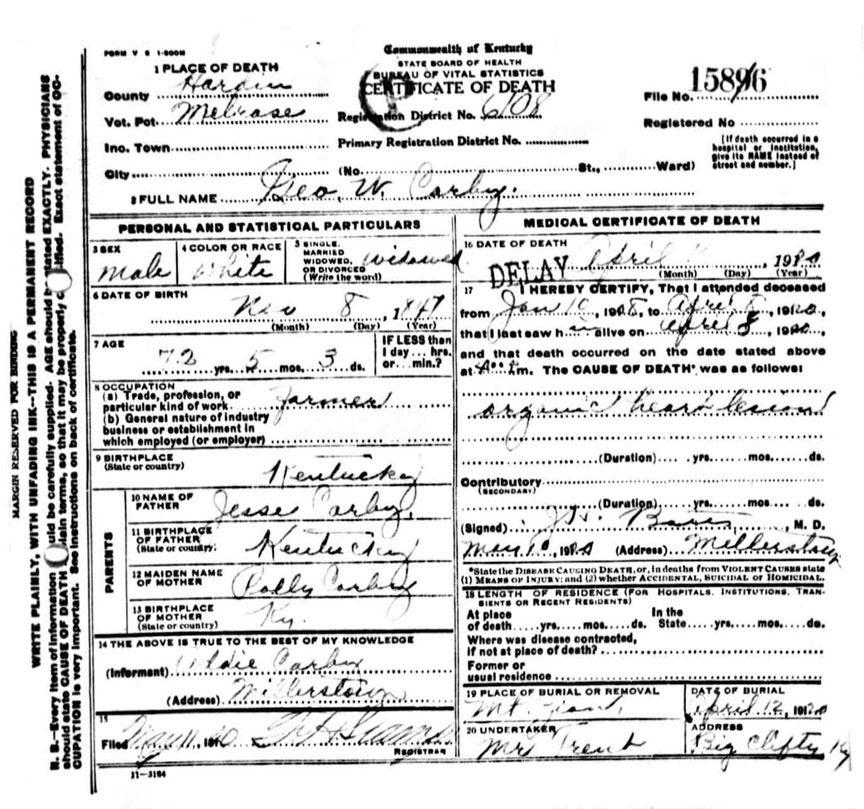 FORM V S 1-500M
Commonwealth of Kentucky
STATE BOARD OF HEALTH
BUREAU OF VITAL STATISTICS
CERTIFICATE OF DEATH
1 PLACE OF DEATH
County Hardin
Vot. Pct. Melrose
Inc. Town
City (No. St., Ward)
Registration District No. 608
Primary Registration District No.
File No. 15896
Registered No
[If death occurred in a hospital or institution, give its NAME instead of street and number.]
2 FULL NAME Geo. W. Corby.
PERSONAL AND STATISTICAL PARTICULARS
3 SEX male
4 COLOR OR RACE White
5 SINGLE, MARRIED WIDOWED, OR DIVORCED (Write the word) Widowed
6 DATE OF BIRTH
Nov 8, 1847
(Month) (Day) (Year)
7 AGE
72 yrs. 5 mos. 3 ds.
IF LESS than 1 day ... hrs. or ... min.?
8 OCCUPATION
(a) Trade, profession, or particular kind of work. Farmer
(b) General nature of industry business or establishment in which employed (or employer)
9 BIRTHPLACE
(State or country)
Kentucky
PARENTS
10 NAME OF FATHER Jesse Corby,
11 BIRTHPLACE OF FATHER (State or country) Kentucky
12 MAIDEN NAME OF MOTHER Polly Corby
13 BIRTHPLACE OF MOTHER (State or country) Ky.
14 THE ABOVE IS TRUE TO THE BEST OF MY KNOWLEDGE
(Informant) Corby
(Address) Millerstown
15
Filed May 11, 19
REGISTRAR
11-3184
MEDICAL CERTIFICATE OF DEATH
16 DATE OF DEATH
DELAY April 1920
(Month) (Day) (Year)
17 I HEREBY CERTIFY, That I attended deceased
from Jan 10, 19 , to April 8, 1920,
that I last saw h alive on April 8, 1920,
and that death occurred on the date stated above
at m. The CAUSE OF DEATH* was as follows:
organic heart lesion
(Duration) yrs. mos. ds.
Contributory
(SECONDARY)
(Duration) yrs. mos. ds.
(Signed) M. D.
May 10, 1920 (Address) Millerstown
*State the DISEASE CAUSING DEATH, or, in deaths from VIOLENT CAUSES state
(1) MEANS OF INJURY; and (2) whether ACCIDENTAL, SUICIDAL or HOMICIDAL.
18 LENGTH OF RESIDENCE (FOR HOSPITALS, INSTITUTIONS, TRANSIENTS OR RECENT RESIDENTS)
At place of death yrs. mos. ds. In the State yrs. mos. ds.
Where was disease contracted, if not at place of death?
Former or usual residence
19 PLACE OF BURIAL OR REMOVAL
Mt.
DATE OF BURIAL
April 12, 1920
20 UNDERTAKER
Mr Trent
ADDRESS
Big Clifty Ky
MARGIN RESERVED FOR BINDING
WRITE PLAINLY, WITH UNFADING INK—THIS IS A PERMANENT RECORD
N. B.—Every item of information should be carefully supplied. AGE should be stated EXACTLY. PHYSICIANS
should state CAUSE OF DEATH in plain terms, so that it may be properly classified. Exact statement of OC-
CUPATION is very important. See instructions on back of certificate.